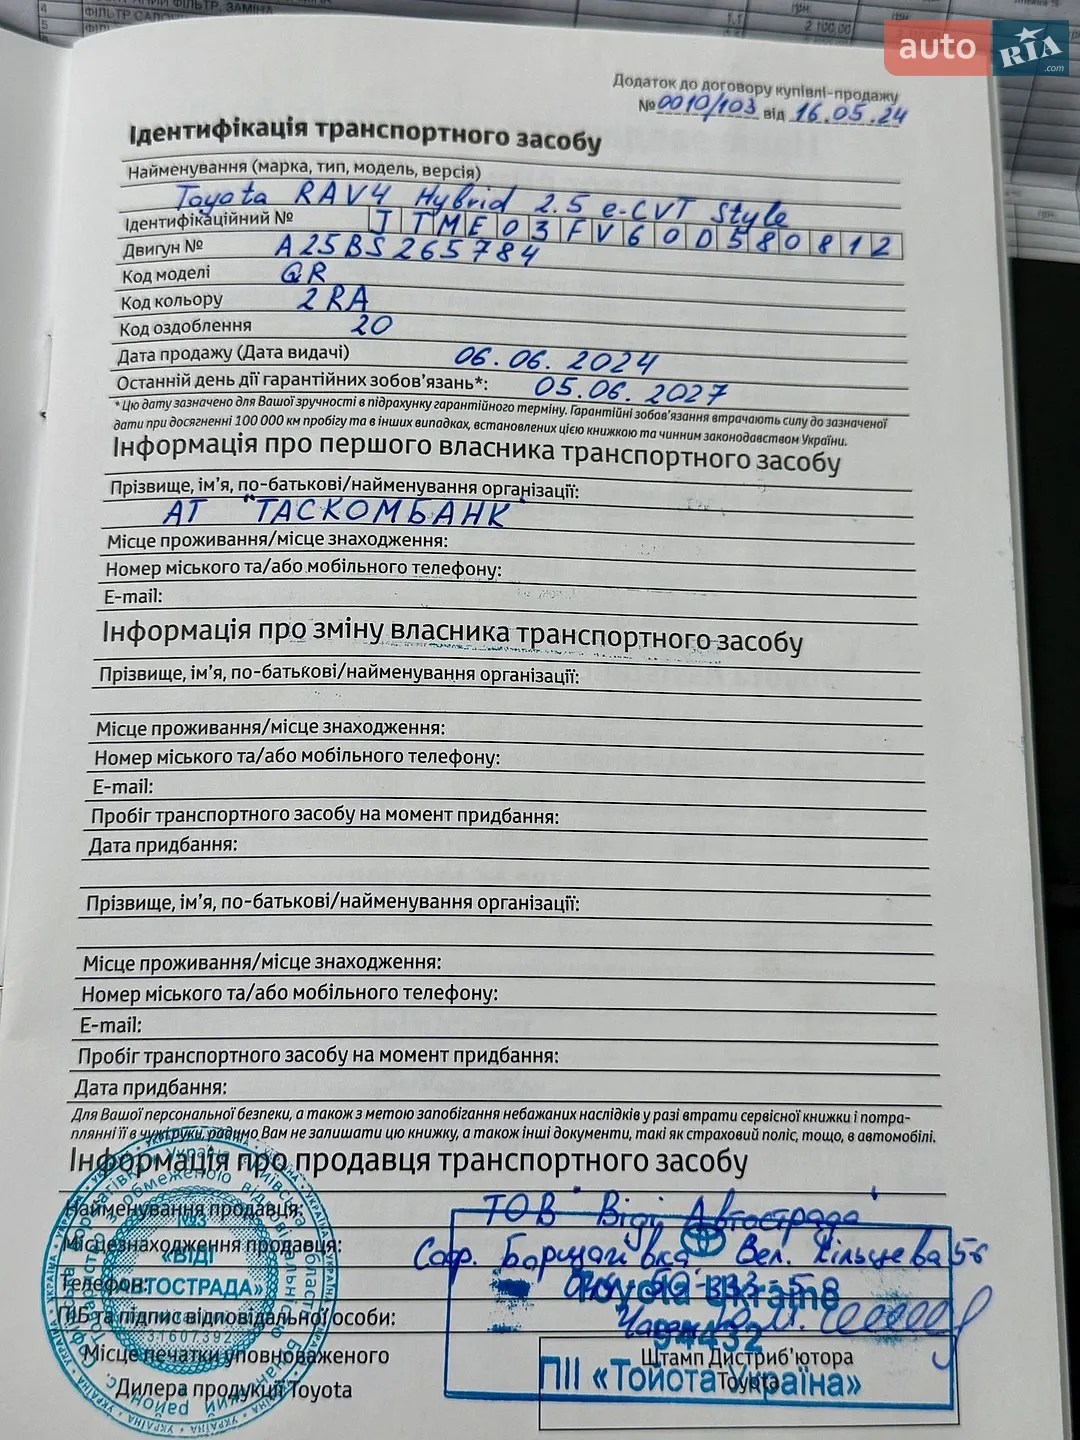 4
ФІЛЬТР, ЗАМІНА
грн.
5
2 100,00
auto RIA .com
Додаток до договору купівлі-продажу
№ 0010/103 від 16.05.24
Ідентифікація транспортного засобу
Найменування (марка, тип, модель, версія)
Toyota RAV4 Hybrid 2.5 e-CVT Style
Ідентифікаційний № JTME03FV60D580812
Двигун № A25BS265784
Код моделі QR
Код кольору 2RA
Код оздоблення 20
Дата продажу (Дата видачі) 06.06.2024
Останній день дії гарантійних зобов'язань*: 05.06.2027
*Цю дату зазначено для Вашої зручності в підрахунку гарантійного терміну. Гарантійні зобов'язання втрачають силу до зазначеної
дати при досягненні 100 000 км пробігу та в інших випадках, встановлених цією книжкою та чинним законодавством України.
Інформація про першого власника транспортного засобу
Прізвище, ім'я, по-батькові/найменування організації:
АТ "ТАСКОМБАНК"
Місце проживання/місце знаходження:
Номер міського та/або мобільного телефону:
E-mail:
Інформація про зміну власника транспортного засобу
Прізвище, ім'я, по-батькові/найменування організації:
Місце проживання/місце знаходження:
Номер міського та/або мобільного телефону:
E-mail:
Пробіг транспортного засобу на момент придбання:
Дата придбання:
Прізвище, ім'я, по-батькові/найменування організації:
Місце проживання/місце знаходження:
Номер міського та/або мобільного телефону:
E-mail:
Пробіг транспортного засобу на момент придбання:
Дата придбання:
Для Вашої персональної безпеки, а також з метою запобігання небажаних наслідків у разі втрати сервісної книжки і потра-
плянні її в чужі руки, радимо Вам не залишати цю книжку, а також інші документи, такі як страховий поліс, тощо, в автомобілі.
Інформація про продавця транспортного засобу
Найменування продавця: ТОВ "Віді Автострада"
Місцезнаходження продавця: Соф. Борщагівка Вел. Кільцева 56
Телефон:
ПІБ та підпис відповідальної особи:
Місце печатки уповноваженого
Дилера продукції Toyota
Штамп Дистриб'ютора
Toyota
№3
«ВІДІ
АВТОСТРАДА»
31607392
Toyota Ukraine
94432
ПІІ «Тойота Україна»